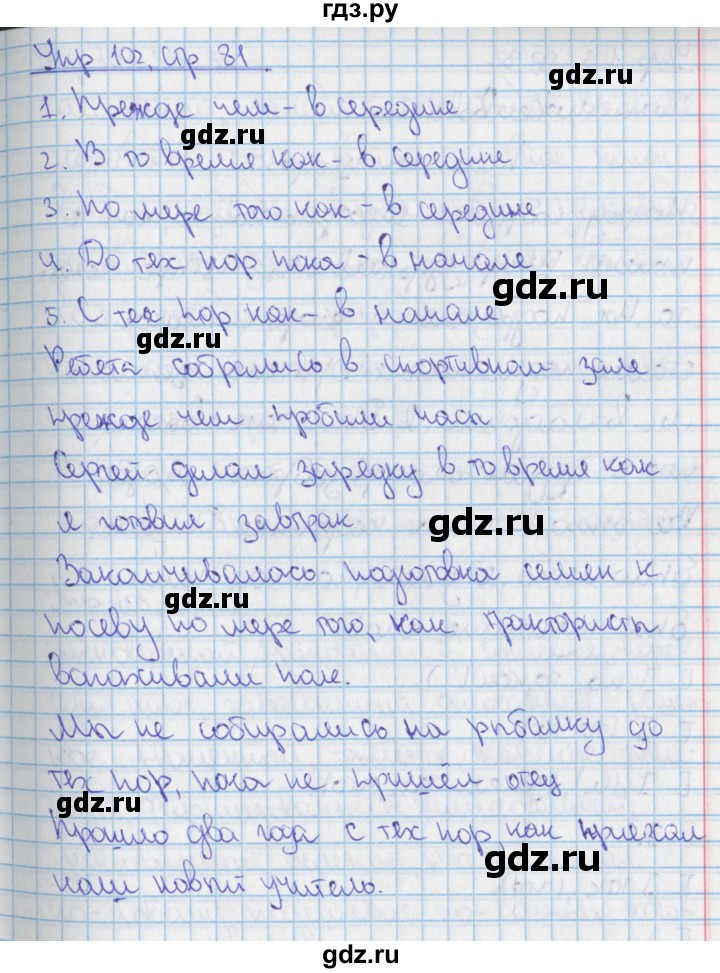 гдз.ру
Упр 102, стр 81.
gdz.ru
1. Прежде чем - в середине
gdz.ru
2. В то время как - в середине
3. По мере того как - в середине
4. До тех пор пока - в начале
gdz.ru
5. С тех пор как - в начале
gdz.ru
Ребята собрались в спортивном зале
прежде чем пробили часы
Сергей делал зарядку в то время как
я готовил завтрак
gdz.ru
Заканчивалась подготовка семян к
gdz.ru
посеву по мере того, как трактористы
вспахивали поле.
Мы не собирались на рыбалку до
тех пор, пока не пришёл отец
gdz.ru
Прошло два года с тех пор, как приехал
gdz.ru
наш новый учитель.
gdz.ru
gdz.ru